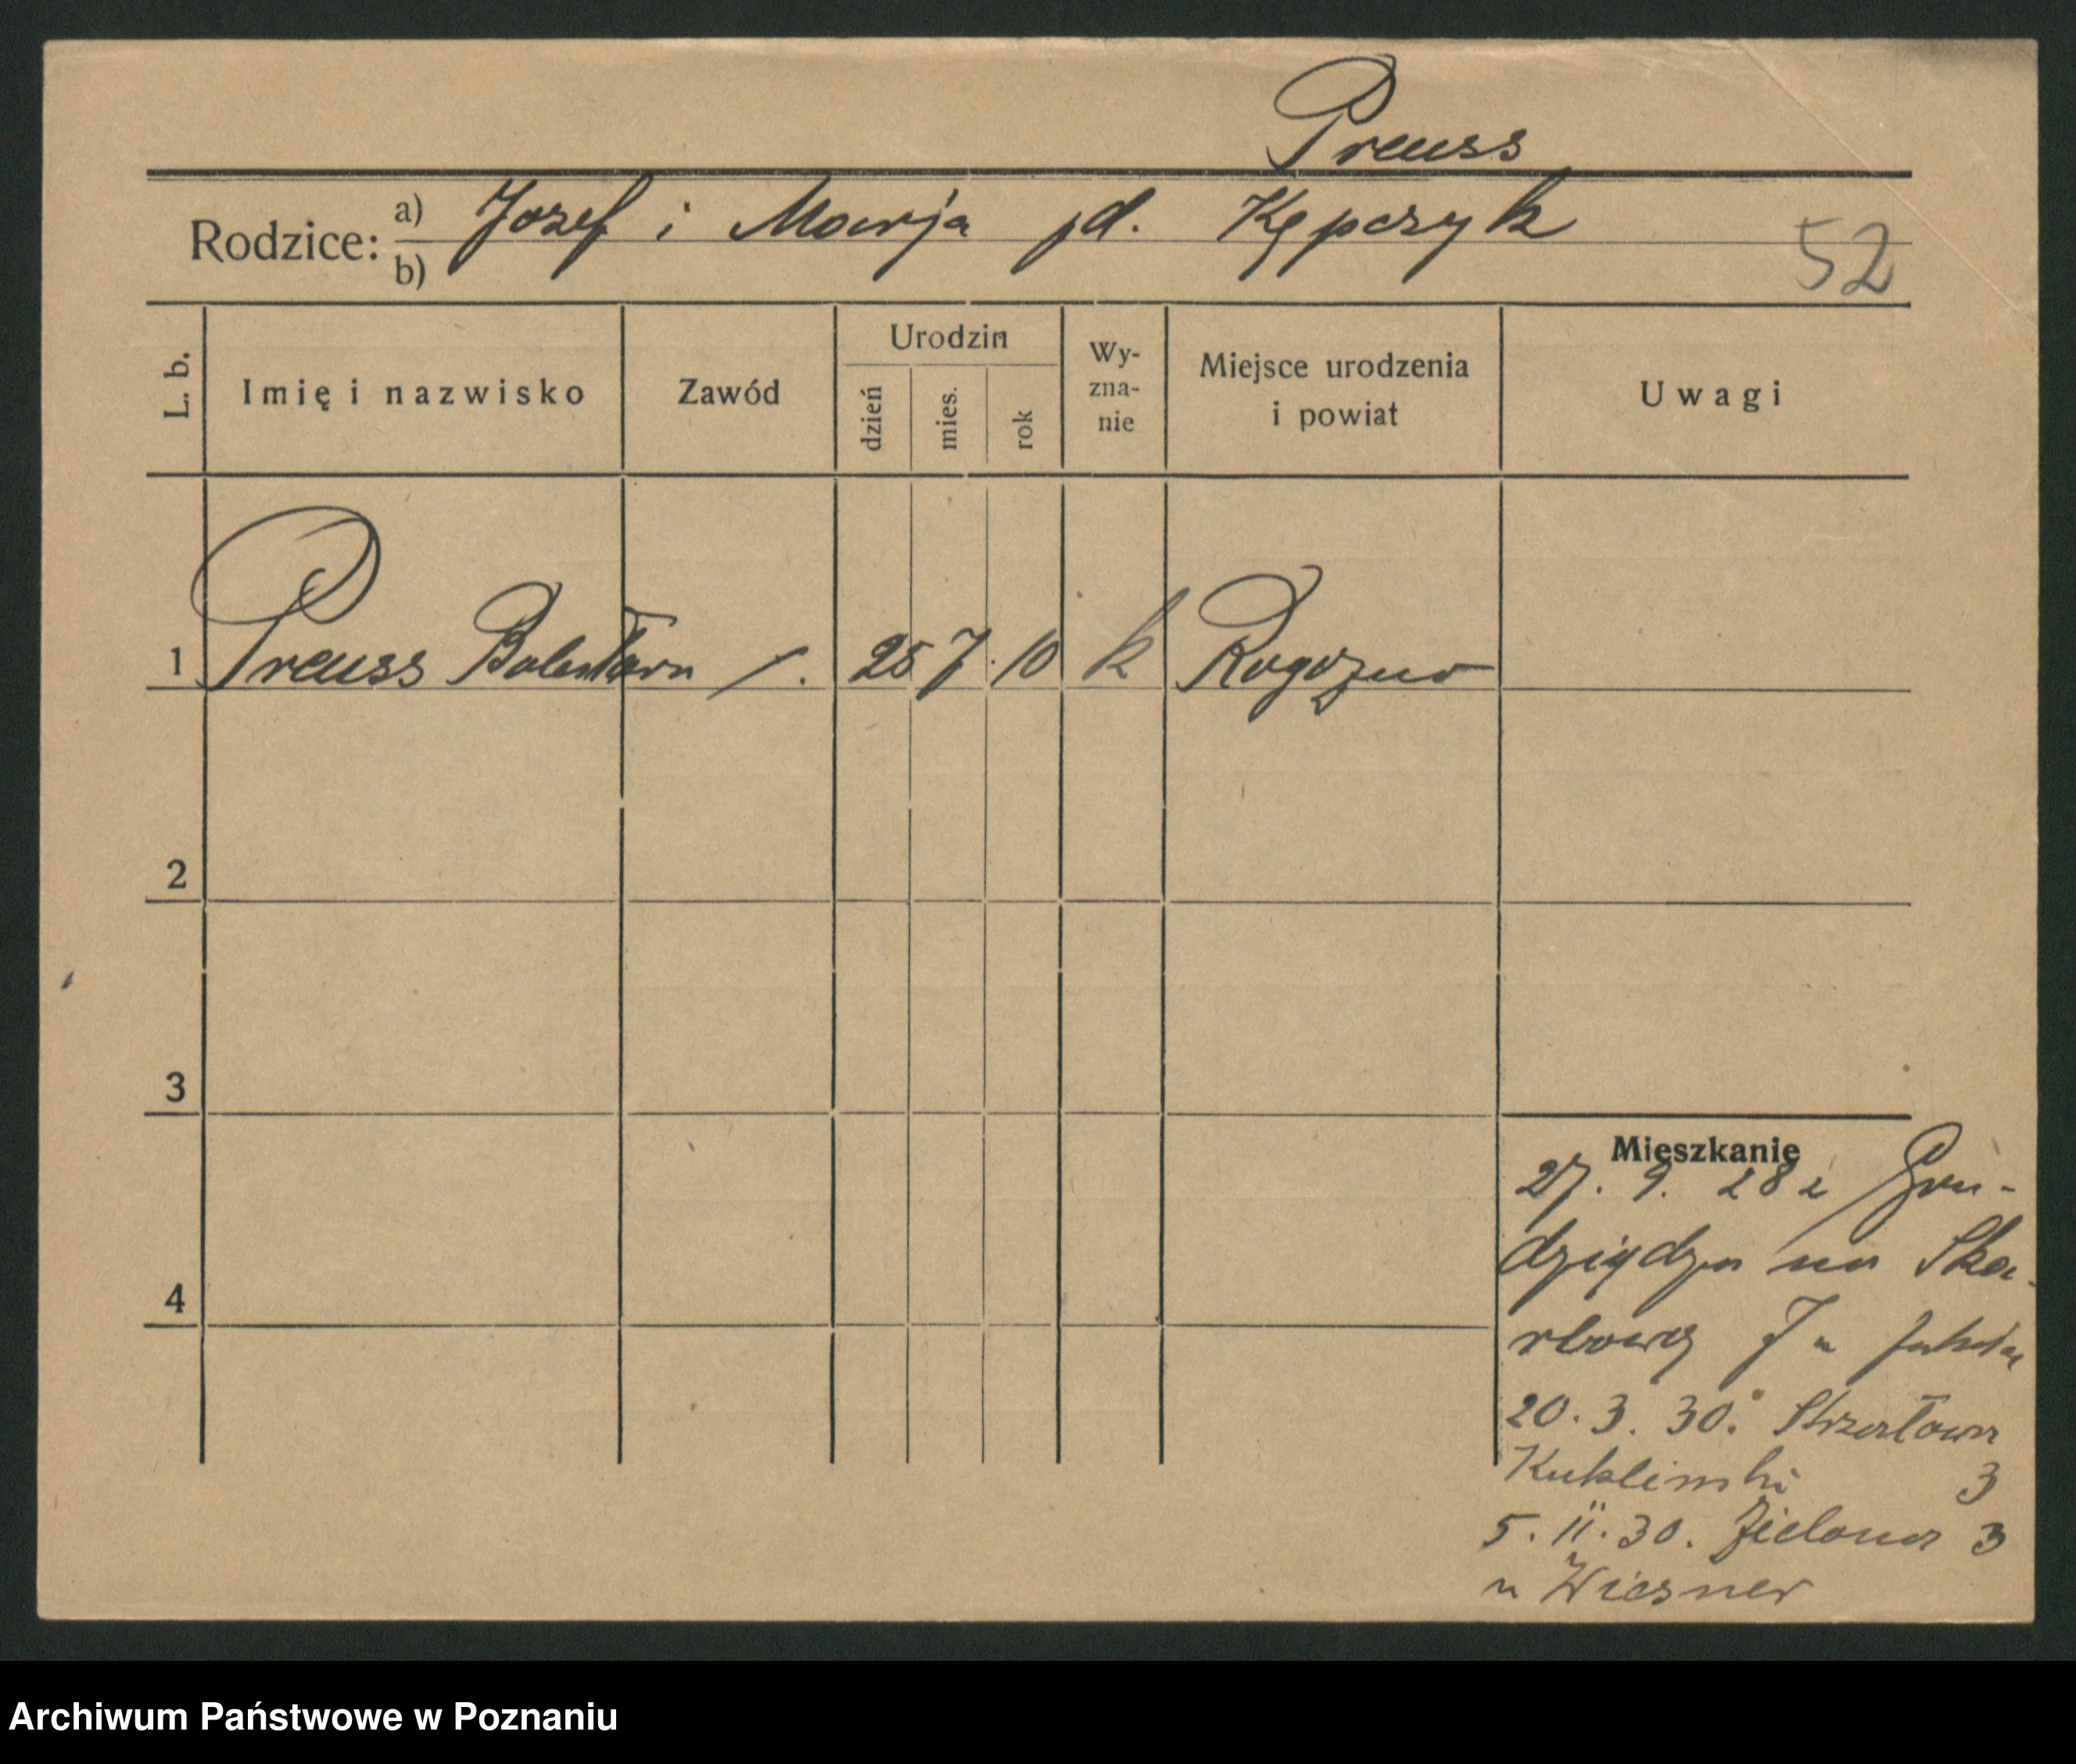 Preuss
Rodzice: a) Jozef i Marja jd. Kępczyk
b)
52
L. b. Imię i nazwisko Zawód Urodzin dzień mies. rok Wy-zna-nie Miejsce urodzenia i powiat Uwagi
1 Preuss Bolesław /. 25 7. 10 k Rogoźno
2
3
4
Mieszkanie
27. 9. 28 z Gru-
dziądza na Ska-
rbową 7 u
20. 3. 30. Strzałowa
Kuklinski 3
5. II. 30. Zielona 3
u Wiesner
Archiwum Państwowe w Poznaniu